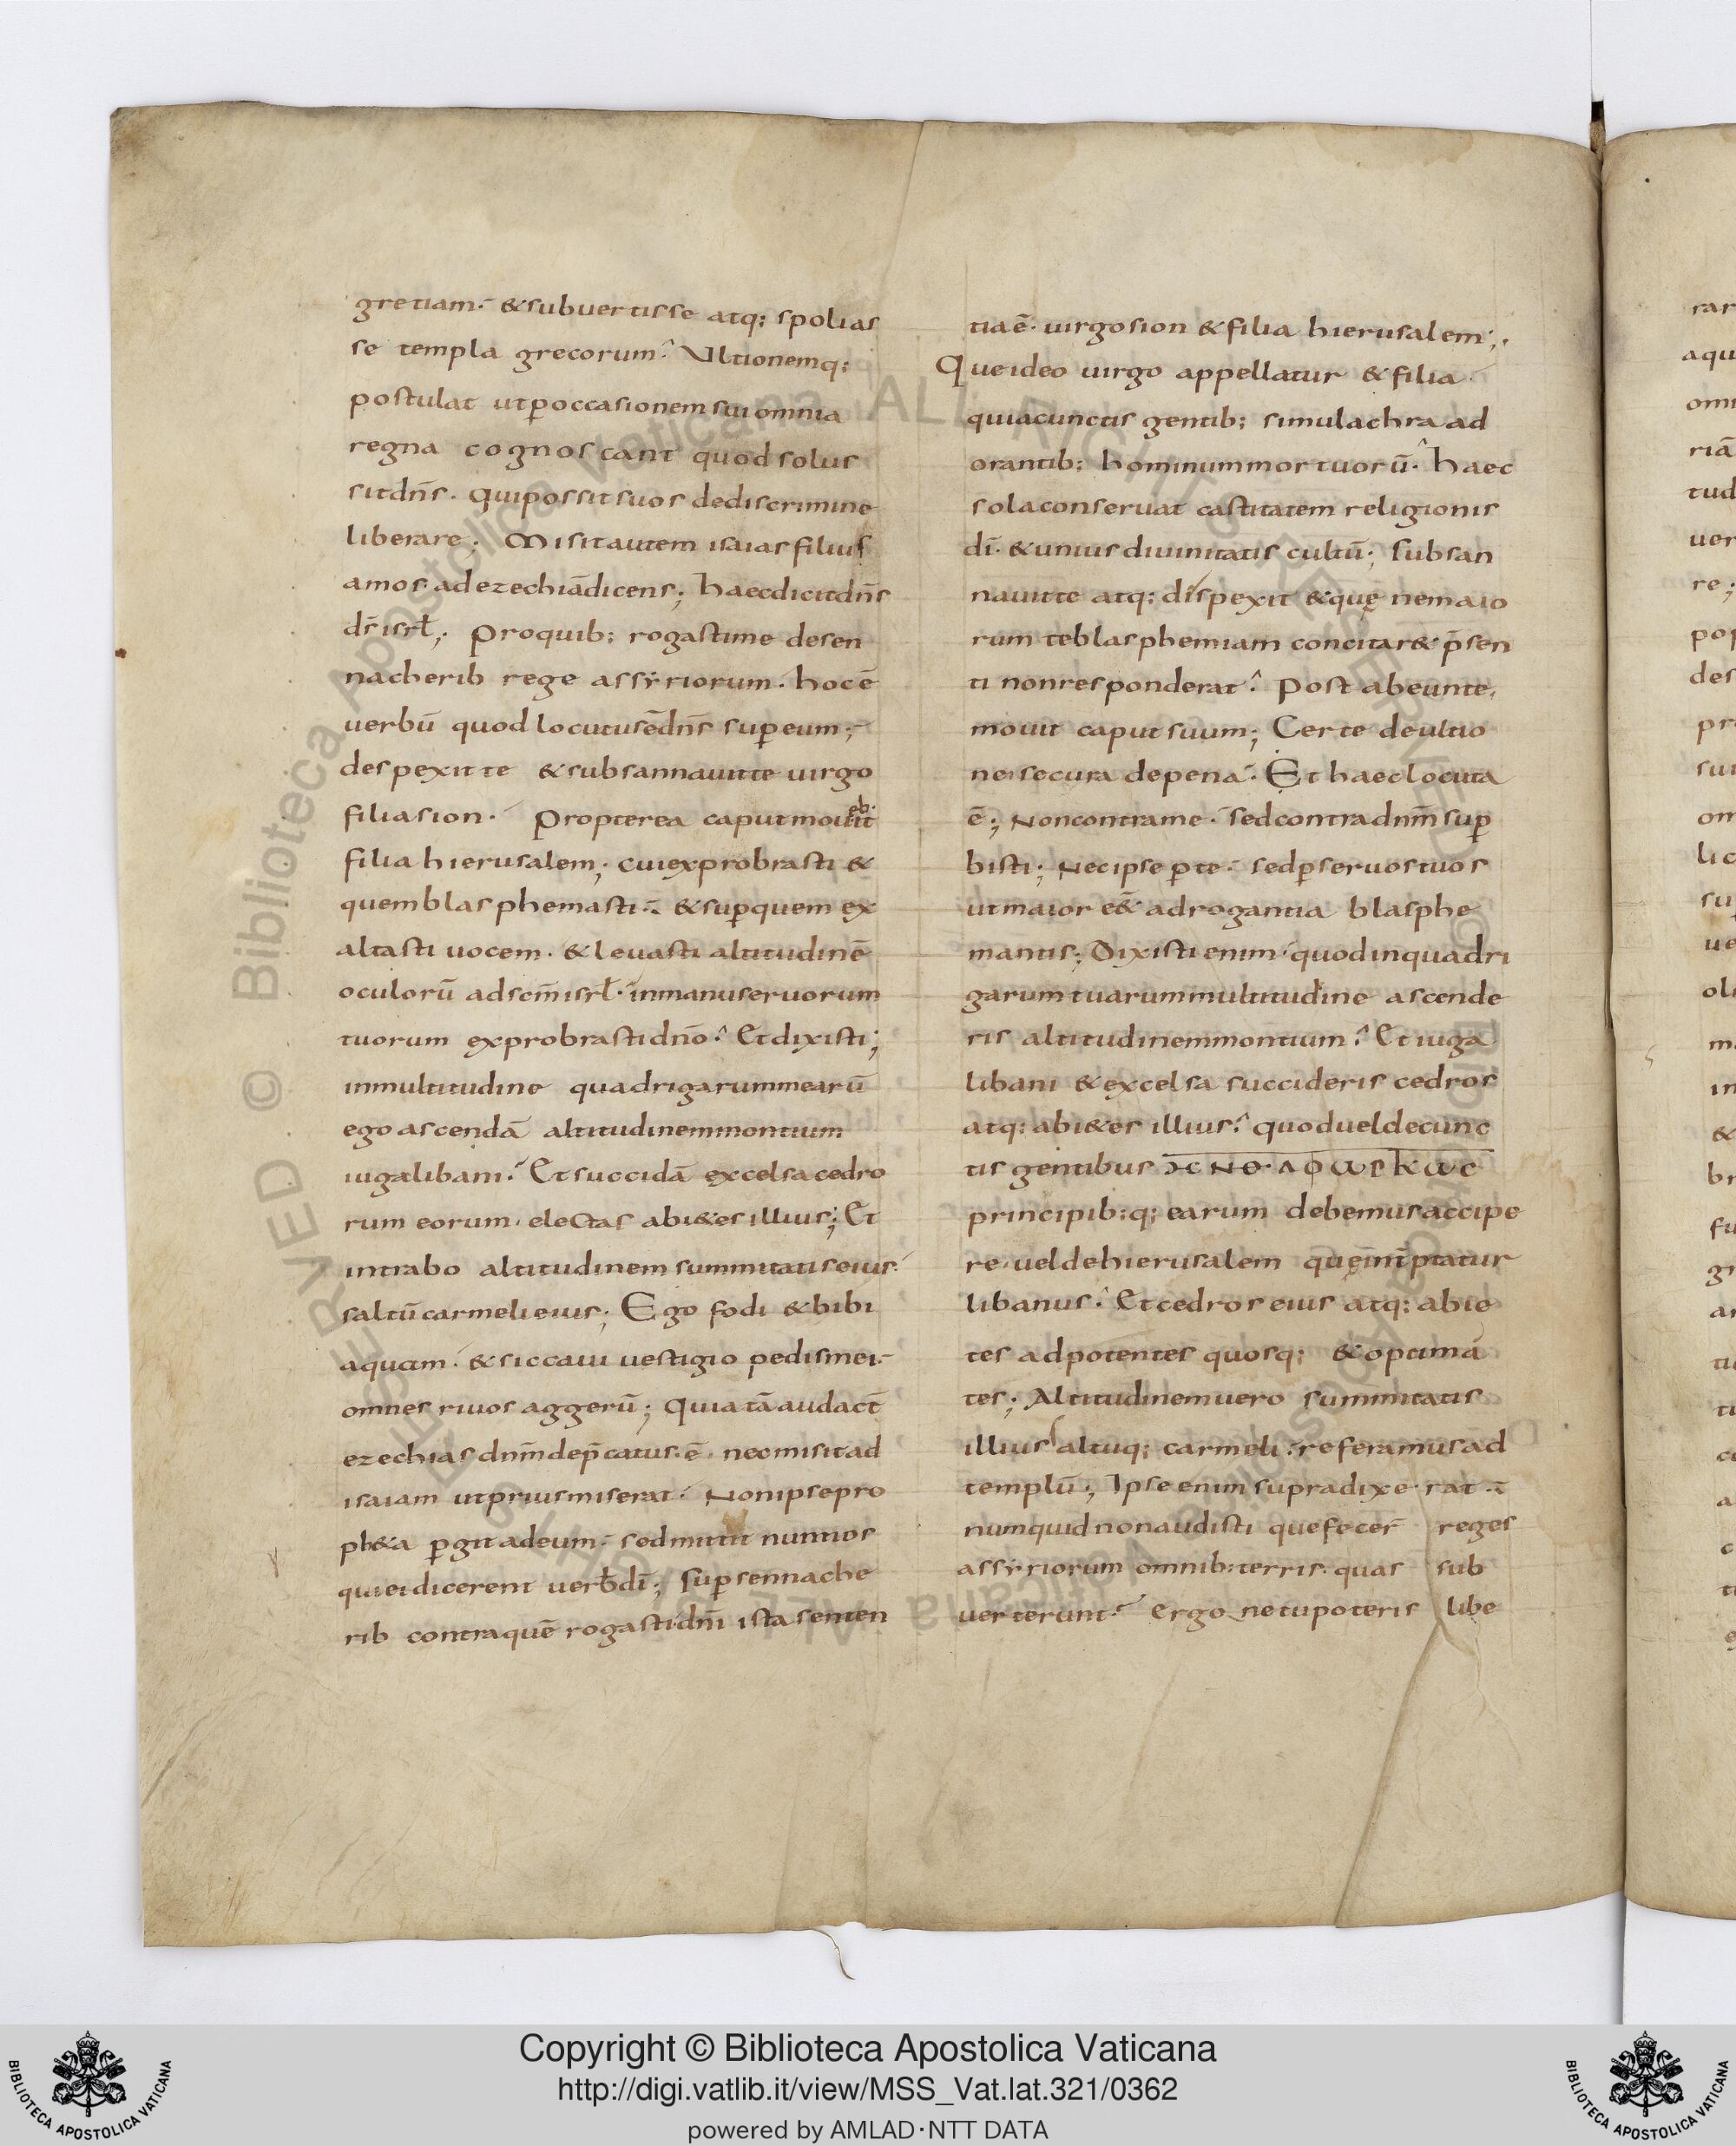 gretiam. & subuertisse atq; spolias
se templa grecorum. Vltionemq;
postulat ut p̄occasionem sui omnia
regna cognoscant quod solus
sit dn̄s. qui possit suos dediscrimine
liberare; Misit autem isaias filius
amos ad ezechiā dicens; haec dicit dn̄s
dī isrł; Pro quib; rogasti me de sen
nacherib rege assyriorum. hoc ē
uerbū quod locutus ē dn̄s sup̄ eum;
despexit te & subsannauit te uirgo
filia sion. Propterea caput mouit
eb.
filia hierusalem; cui exprobrasti &
quem blasphemasti. & sup̄ quem ex
altasti uocem. & leuasti altitudinē
oculorū ad scm̄ isrł. in manu seruorum
tuorum exprobrasti dn̄o. Et dixisti;
in multitudine quadrigarum mearū
ego ascendā altitudinem montium
iuga libani. Et succidā excelsa cedro
rum eorum. electas abi&es illius; Et
intrabo altitudinem summitatis eius.
saltū carmeli eius; Ego fodi & bibi
aquam. & siccaui uestigio pedis mei.
omnes riuos aggerū; Quia tā audact̄
ezechias dnm̄ dep̄catus. ē. nec misit ad
isaiam ut prius miserat. Non ipse pro
ph&a p̄git ad eum. sed mittit nuntios
qui ei dicerent uerb̄ dī; Sup̄ sennache
rib contra quē rogasti dn̄i ista senten
tia ē. uirgo sion & filia hierusalem;
Que ideo uirgo appellatur & filia
quia cunctis gentib; simulachra ad
orantib; hominum mortuorū. haec
sola conseruat castitatem religionis
dī. & unius diuinitatis cultū; Subsan
nauit te atq; dispexit & quę ne maio
rum te blasphemiam concitar& p̄sen
ti non responderat. Post abeunte
mouit caput suum; Certe de ultio
ne secura de pena. Et haec locuta
ē; Non contra me. sed contra dnm̄ sup̄
bisti; Nec ipse p̄ te. sed p̄ seruos tuos
ut maior e&̄ adrogantia blasphe
mantis; Dixisti enim. quod in quadri
garum tuarum multitudine ascende
ris altitudinem montium. Et iuga
libani & excelsa succideris cedros
atq; abi&es illius. quod uel de cunc
tis gentibus
principib;q; earum debemus accipe
re. uel de hierusalem que int̄ptatur
libanus. Et cedros eius atq; abie
tes ad potentes quosq; & optima
tes; Altitudinem uero summitatis
illius saltuq; carmeli. referamus ad
templū; Ipse enim supra dixe rat.
numquid non audisti que fecer̄ reges
assyriorum omnib; terris. quas sub
uerterunt. Ergo ne tu poteris libe
Copyright © Biblioteca Apostolica Vaticana
http://digi.vatlib.it/view/MSS_Vat.lat.321/0362
powered by AMLAD·NTT DATA